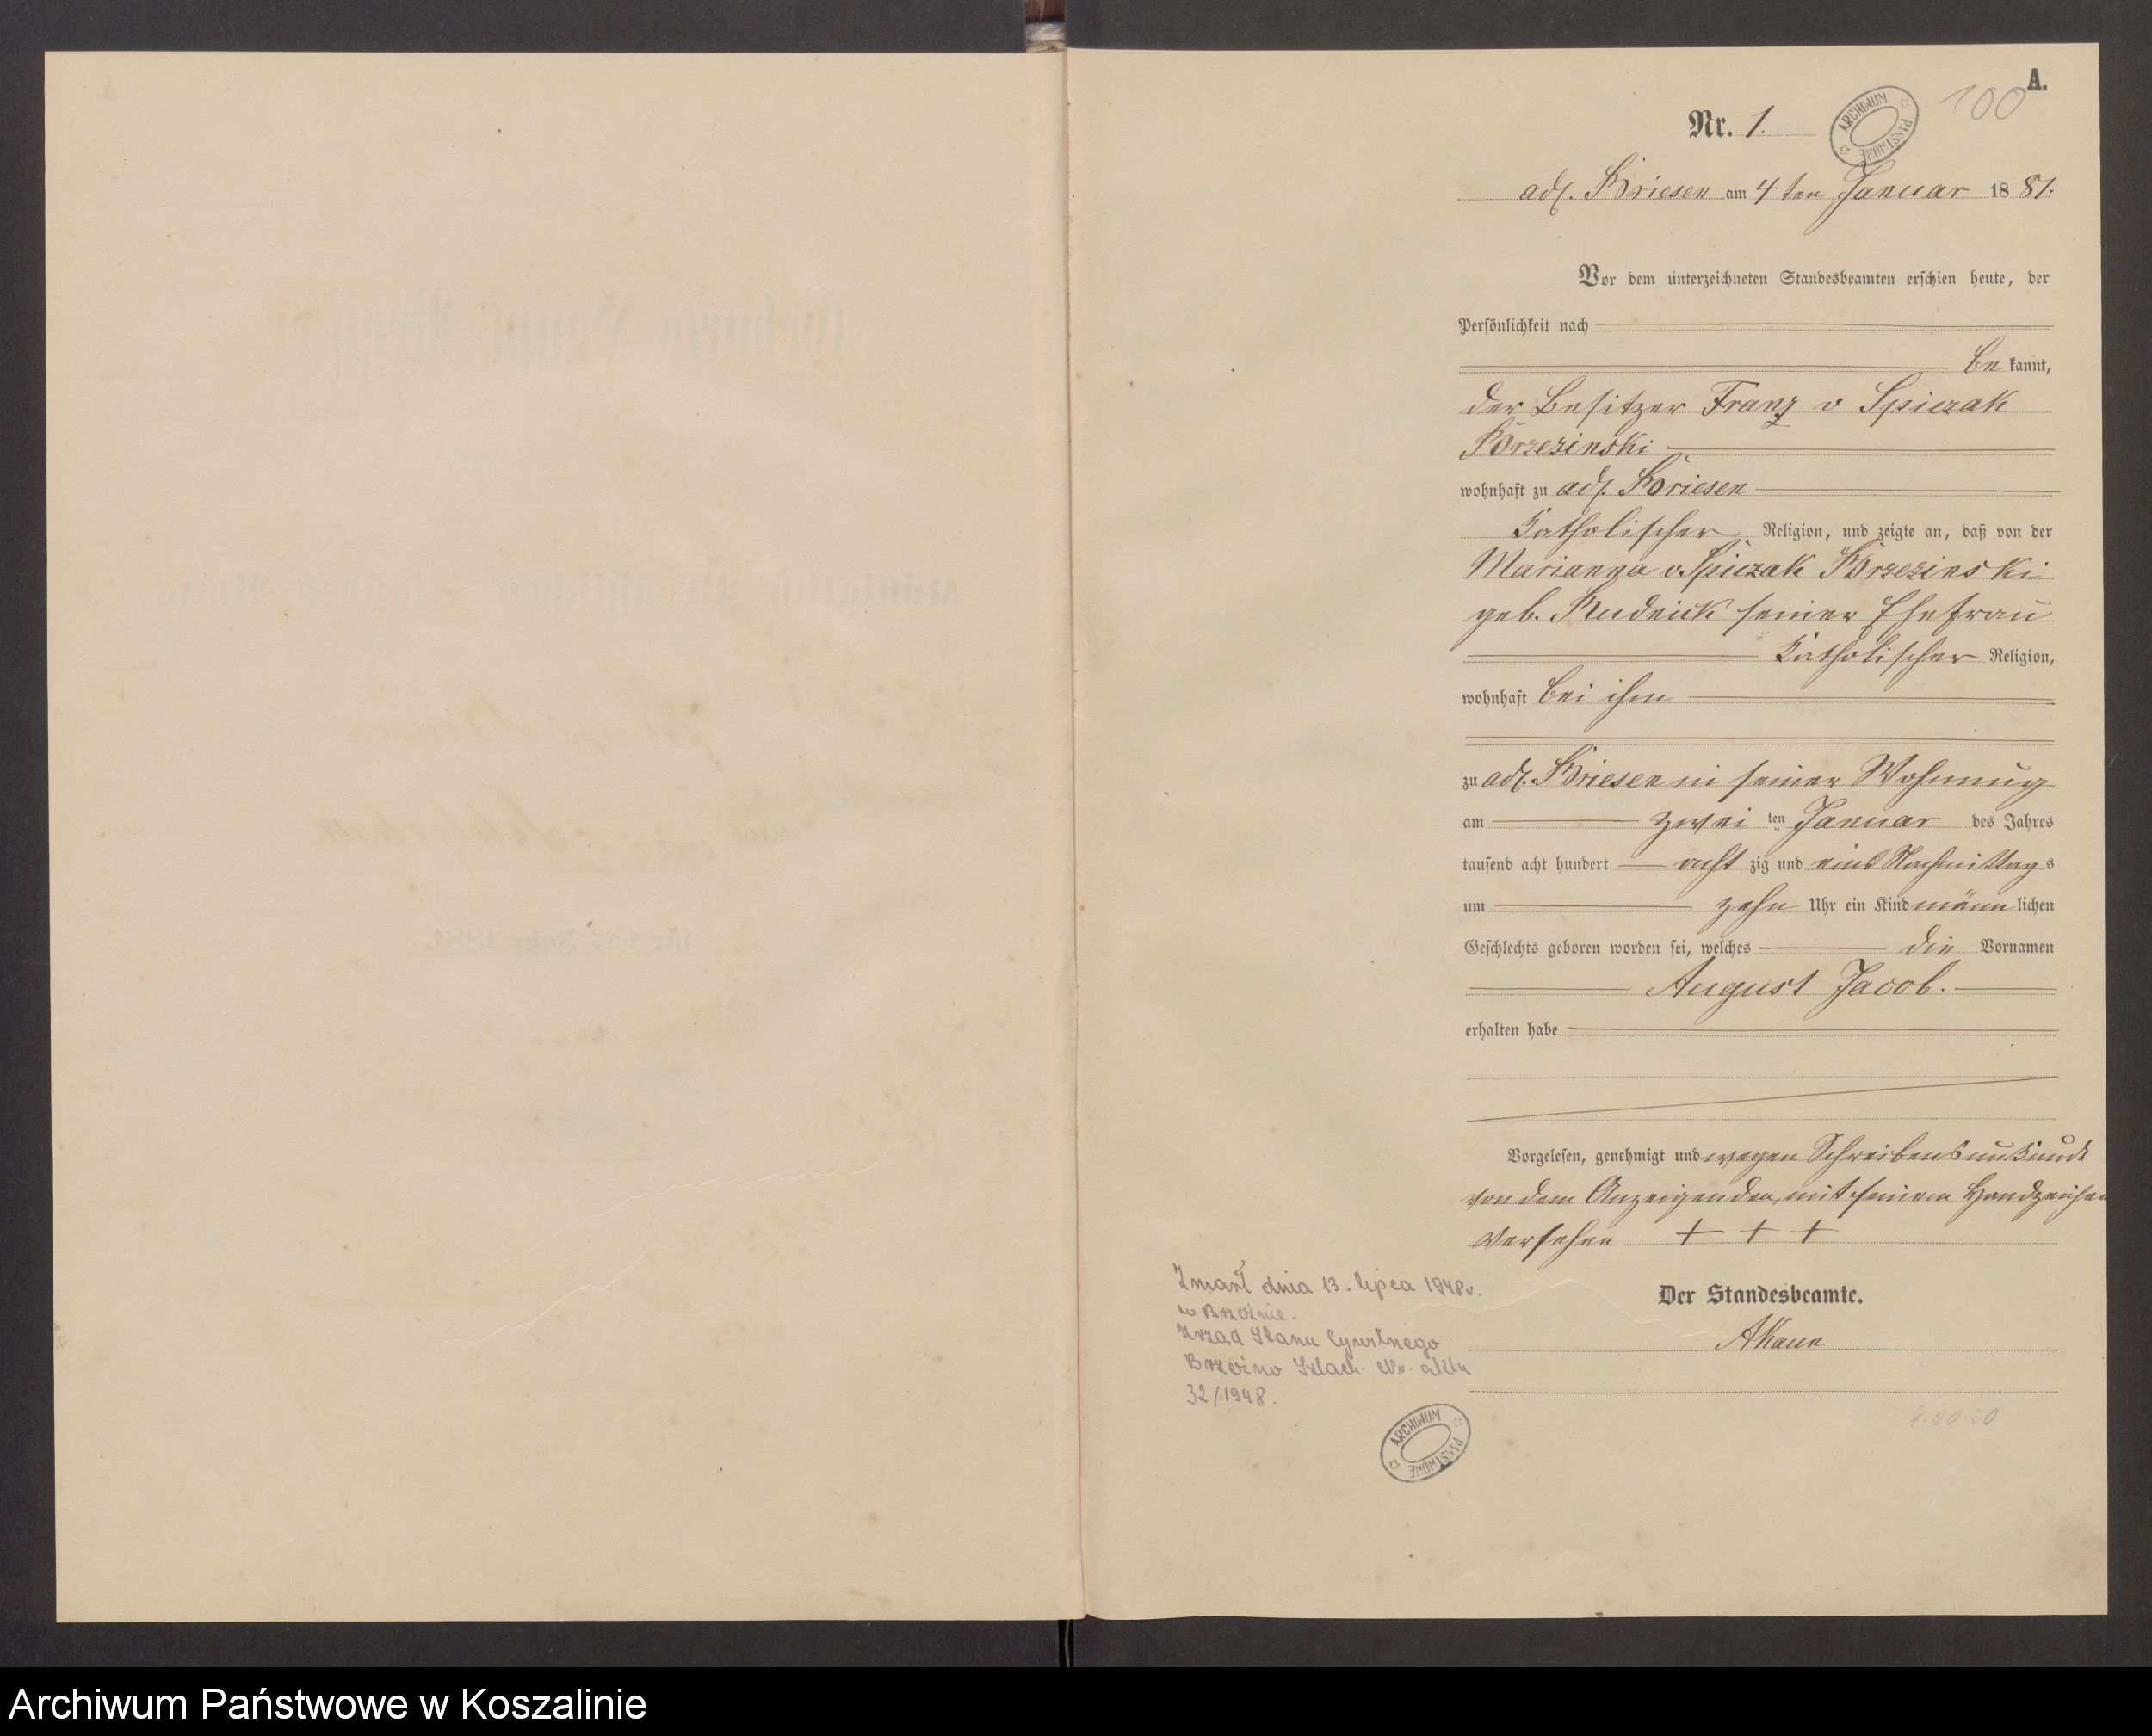 A.
100
Nr. 1.
ARCHIWUM PAŃSTWOWE
adl. Briesen am 4 ten Januar 1881.
Vor dem unterzeichneten Standesbeamten erschien heute, der
Persönlichkeit nach
be kannt,
der Besitzer Franz v Spiczak
Brzezinski
wohnhaft zu adl. Briesen
Katholischer Religion, und zeigte an, daß von der
Marianna v. Spiczak Brzezinski
geb. Rudnick seiner Ehefrau
Katholischer Religion,
wohnhaft bei ihm
zu adl. Briesen in seiner Wohnung
am zwei ten Januar des Jahres
tausend acht hundert acht zig und eins Nachmittag s
um zehn Uhr ein Kind männ lichen
Geschlechts geboren worden sei, welches die Vornamen
August Jacob.
erhalten habe
Vorgelesen, genehmigt und wegen Schreibensunkunde
von dem Anzeigenden, mit seinem Handzeichen
versehen + + +
Der Standesbeamte.
Zmarł dnia 13. lipca 1948r.
w Brzeźnie.
Urząd Stanu Cywilnego
Brzeźno Szlach. Nr. aktu
32/1948.
ARCHIWUM PAŃSTWOWE
Archiwum Państwowe w Koszalinie